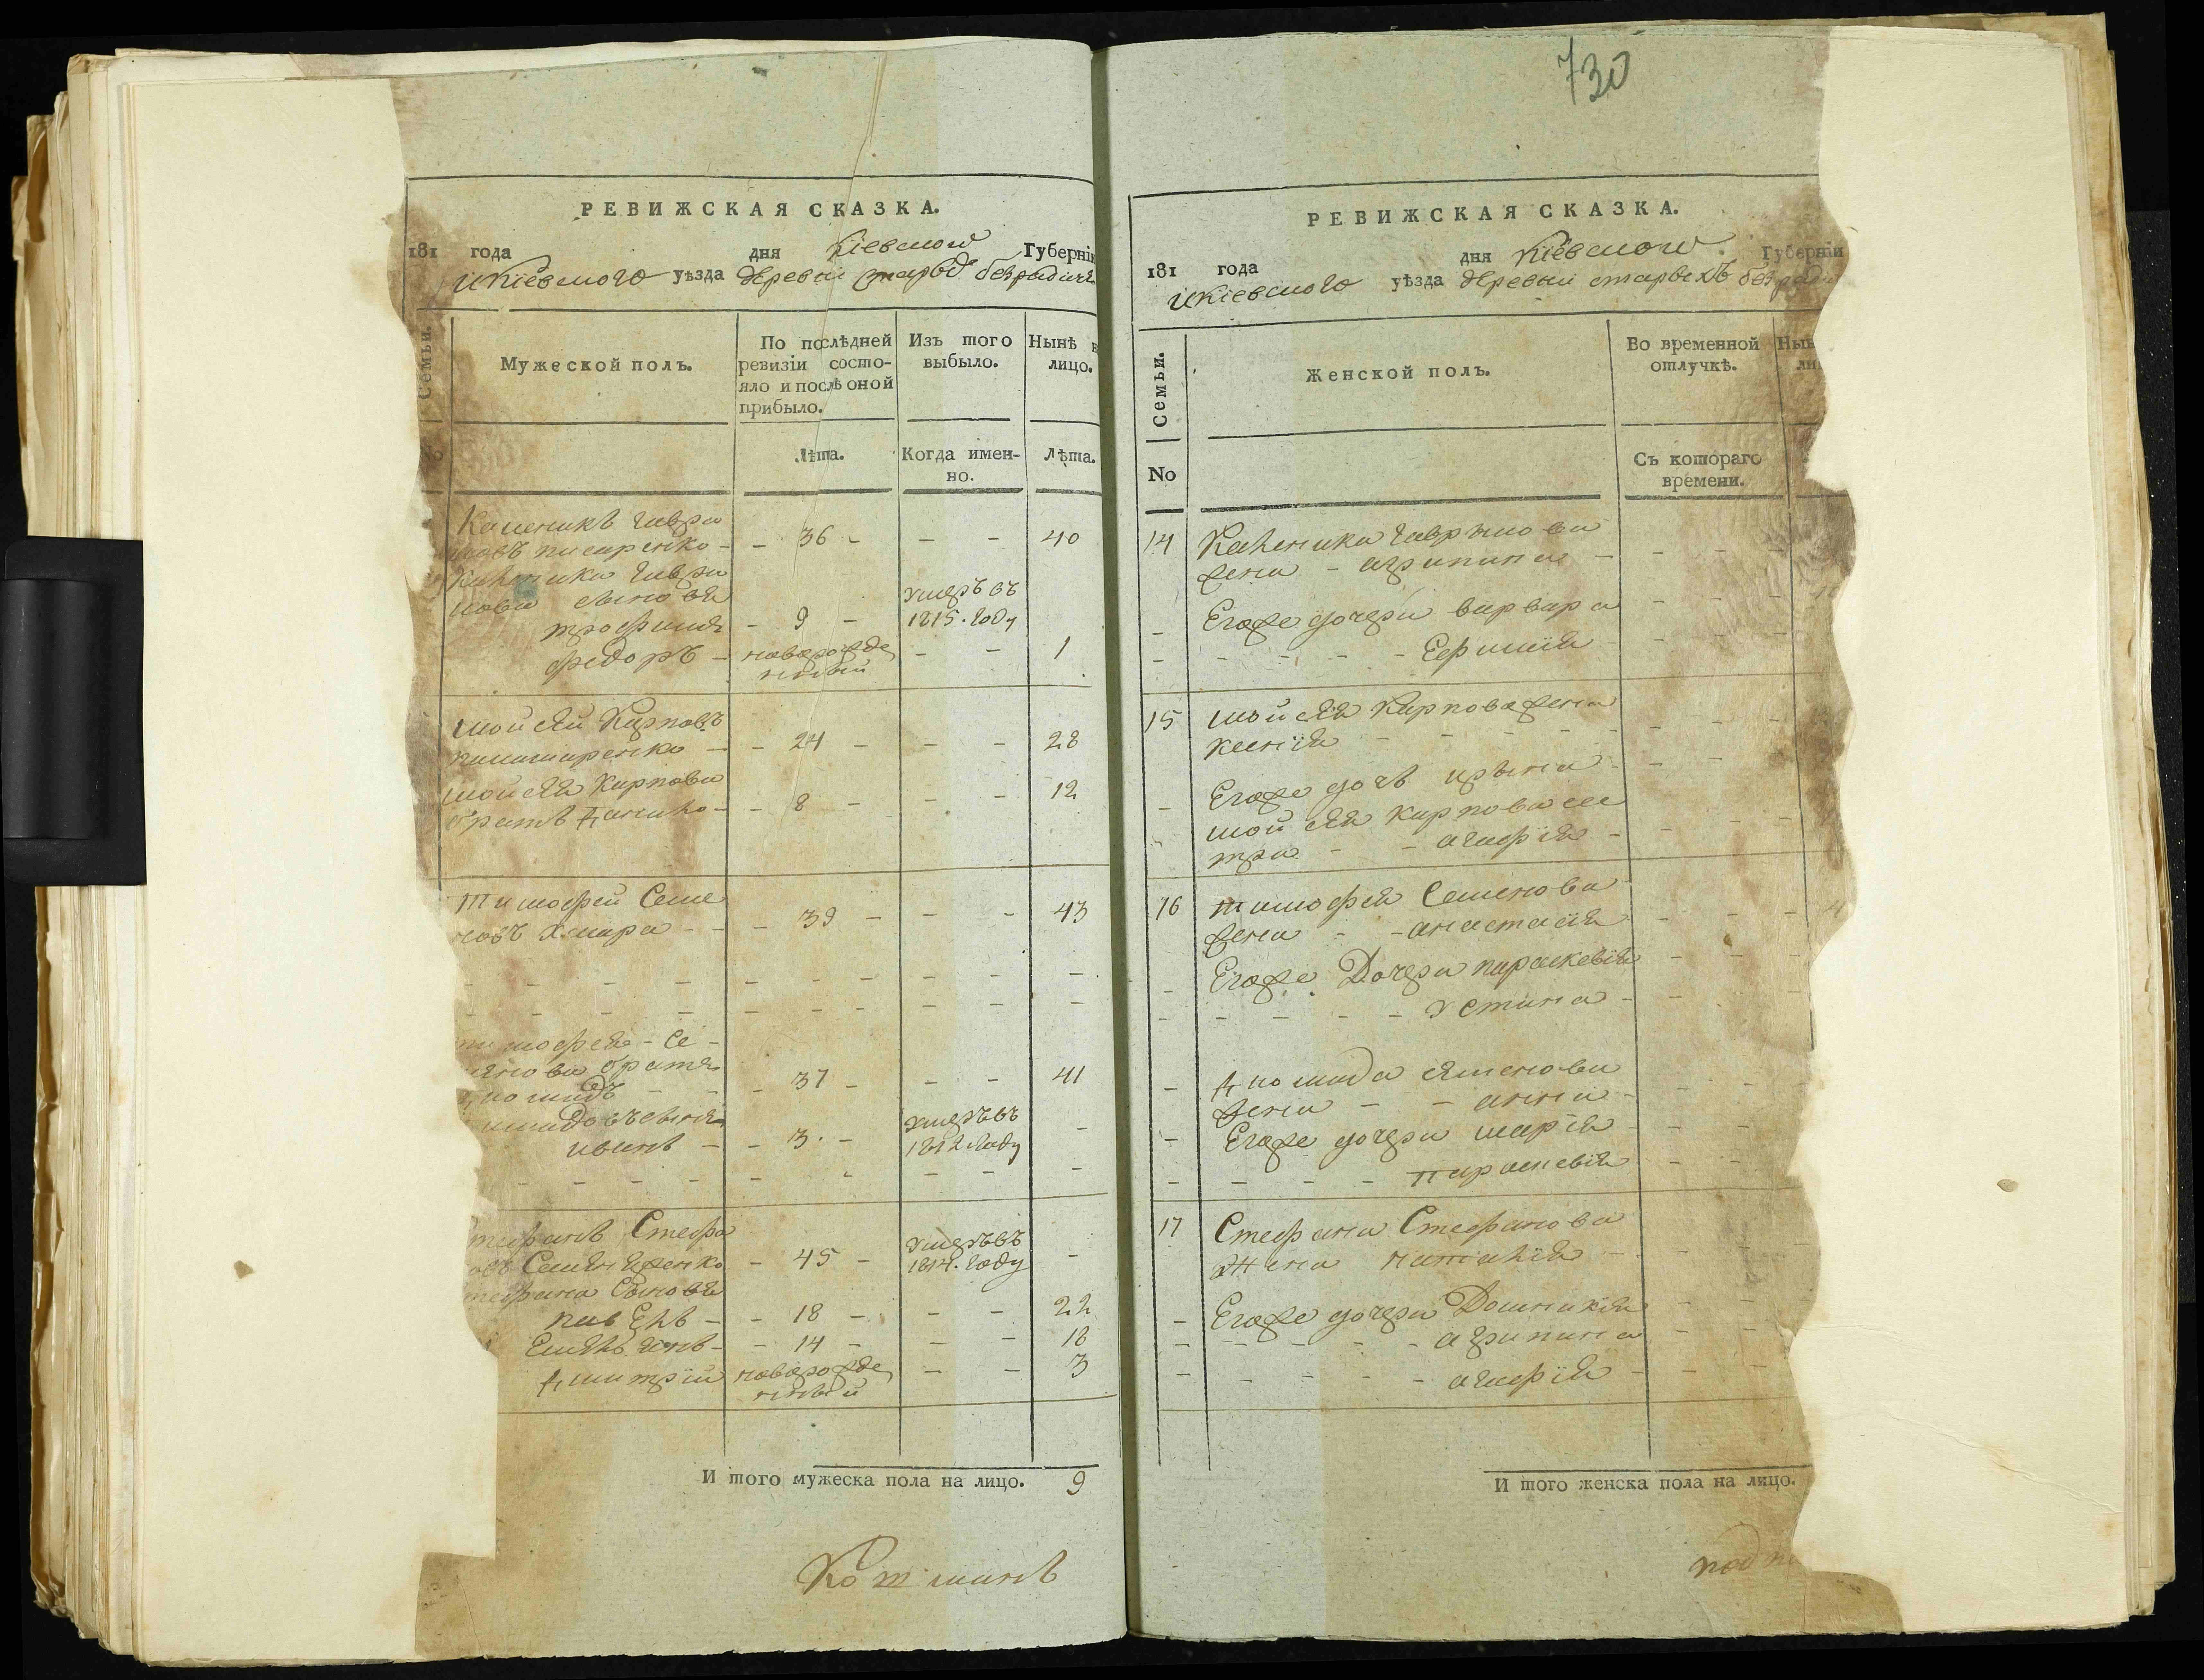 РЕВИЖСКАЯ СКАЗКА.
181 года дня Кіевской Губерніи
Икіевского уѣзда деревни старых безрадич
Семьи.
Мужеской полъ.
По послѣдней
ревизіи состо-
яло и послѣ оной
прибыло.
Изъ того
выбыло.
Нынѣ в
лицо.
Лѣта.
Когда имен-
но.
Лѣта.
Каленикъ Гаври
ловъ писаренко - - 36 - - - 40
Каленика Гаври
лова сынове
трофимъ - 9 - умеръ въ 1815. году
федоръ - новорожде нный - - 1
мойсей Карповъ
- 24 - - - 28
мойсея Карпова
братъ данило - - 8 - - - 12
тимофей Семе
новъ хмара - - - 39 - - - 43
тимофея - Се -
менова братъ
- 37 - - - 41
иванъ - - 3. - умеръ въ 1812 году -
стефанъ Стефа
- 45 - умеръ въ 1814. году -
стефана Сынове
павелъ - - 18 - - - 22
Емельянъ - - 14 - - - 18
дмитрій новорожде нный - - 3
И того мужеска пола на лицо. 9
730
РЕВИЖСКАЯ СКАЗКА.
181 года дня Кіевской Губерніи
Икіевского уѣзда деревни старыхъ безради
Семьи.
No
Женской полъ.
Во временной
отлучкѣ.
Нын
ли
Съ котораго
времени.
14 Каленика Гаврилова
жена - агрипина -
- Егоже дочери варвара
- - - - - Ефимія
15 мойсея Карпова жена
ксенія
- Егоже дочь ирина
- мойсея Карпова сес
тра - - агафія -
16 тимофея Семенова
жена - - анастасія
- Егоже Дочери параскевія
- - - - - устина -
- Семенова
жена - - анна -
- Егоже дочери марія
- - - - - параскевія
17 Стефана Стефанова
жена наталія -
- Егоже дочери Домникія
- - - - - агрипина
- - - - - агафія
И того женска пола на лицо.